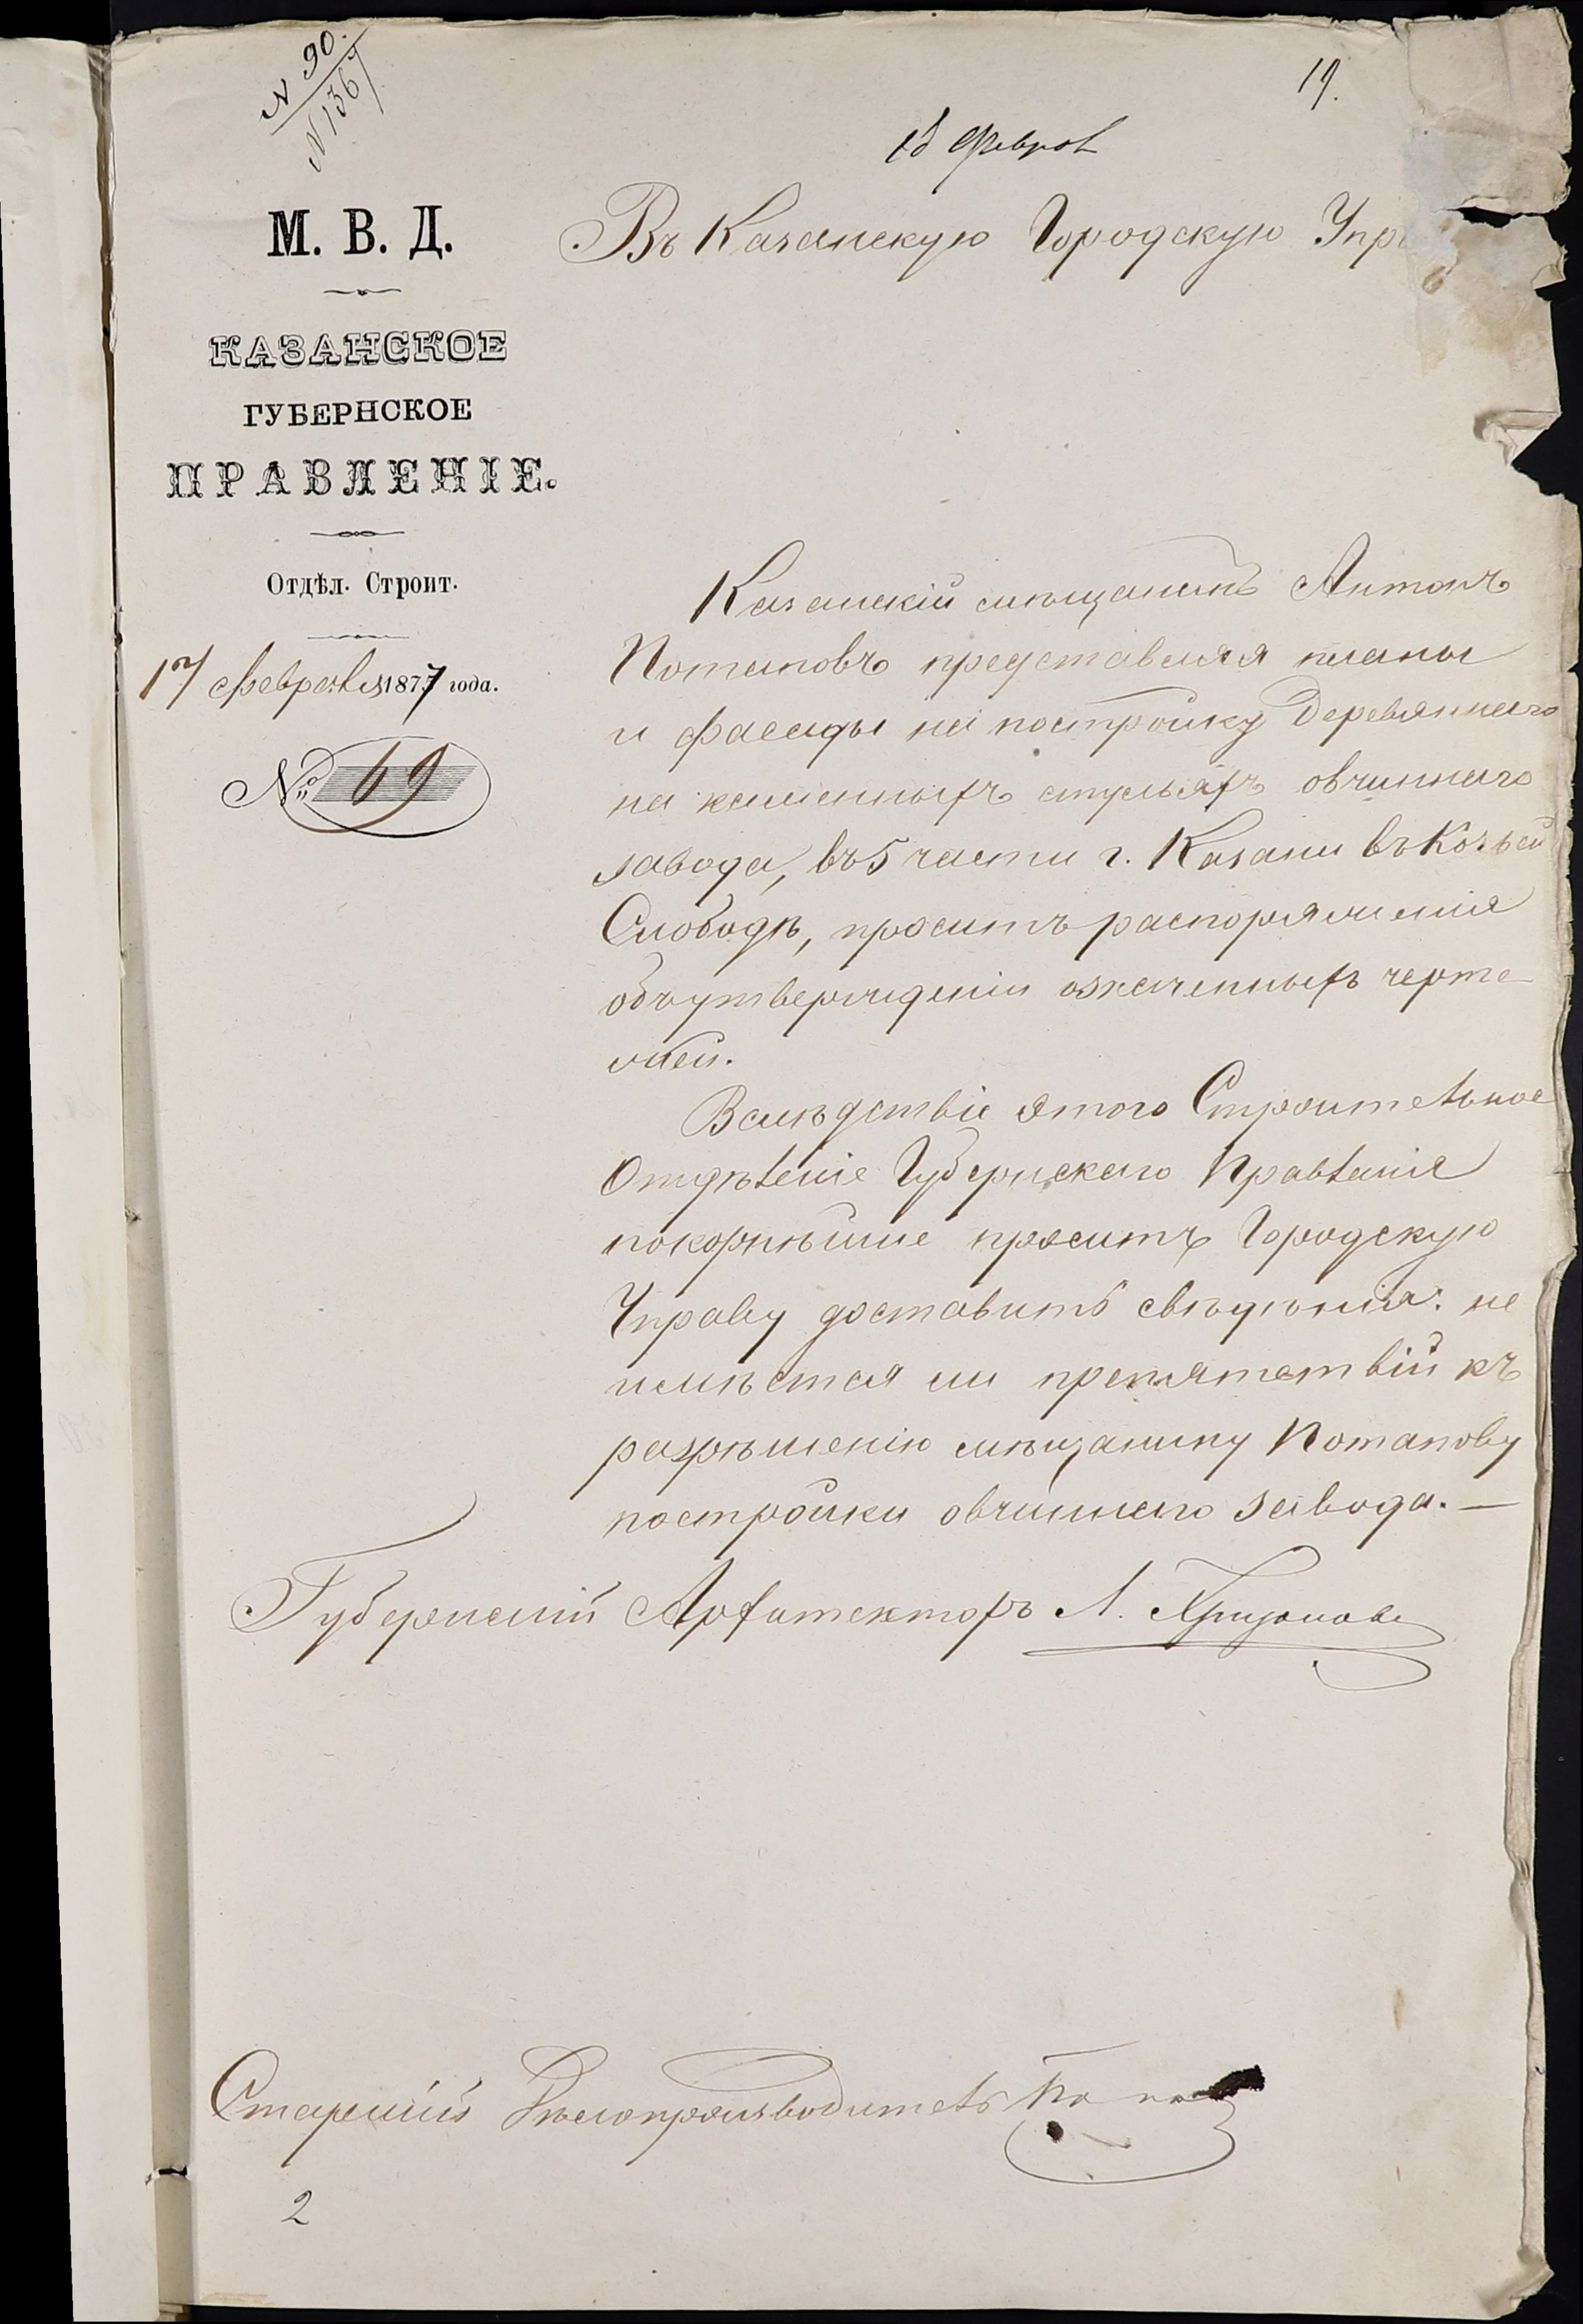 N 90.
N 1367
19.
18 Феврал
М. В. Д.
Въ Казанскую Городскую Упр
КАЗАНСКОЕ
ГУБЕРНСКОЕ
ПРАВЛЕНІЕ.
Отдѣл. Строит.
17 Февраля 1877 года.
№ 69
Казанскій мѣщанинъ Антонъ
Потаповъ представляя планы
и фасады на постройку деревяннаго
на каменныхъ стульяхъ овчиннаго
завода, въ 5 части г. Казани въ Козьей
Слободѣ, проситъ распоряженія
объ утвержденіи означенныхъ черте-
жей.
Вслѣдствіе этого Строительное
Отдѣленіе Губернскаго Правленія
покорнѣйше проситъ Городскую
Управу доставить свѣдѣнія: не
имѣется ли препятствій къ
разрѣшенію мѣщанину Потапову
постройки овчиннаго завода. —
Губернскій Архитекторъ Л. Хрщоновъ
Старшій Дѣлопроизводитель
2